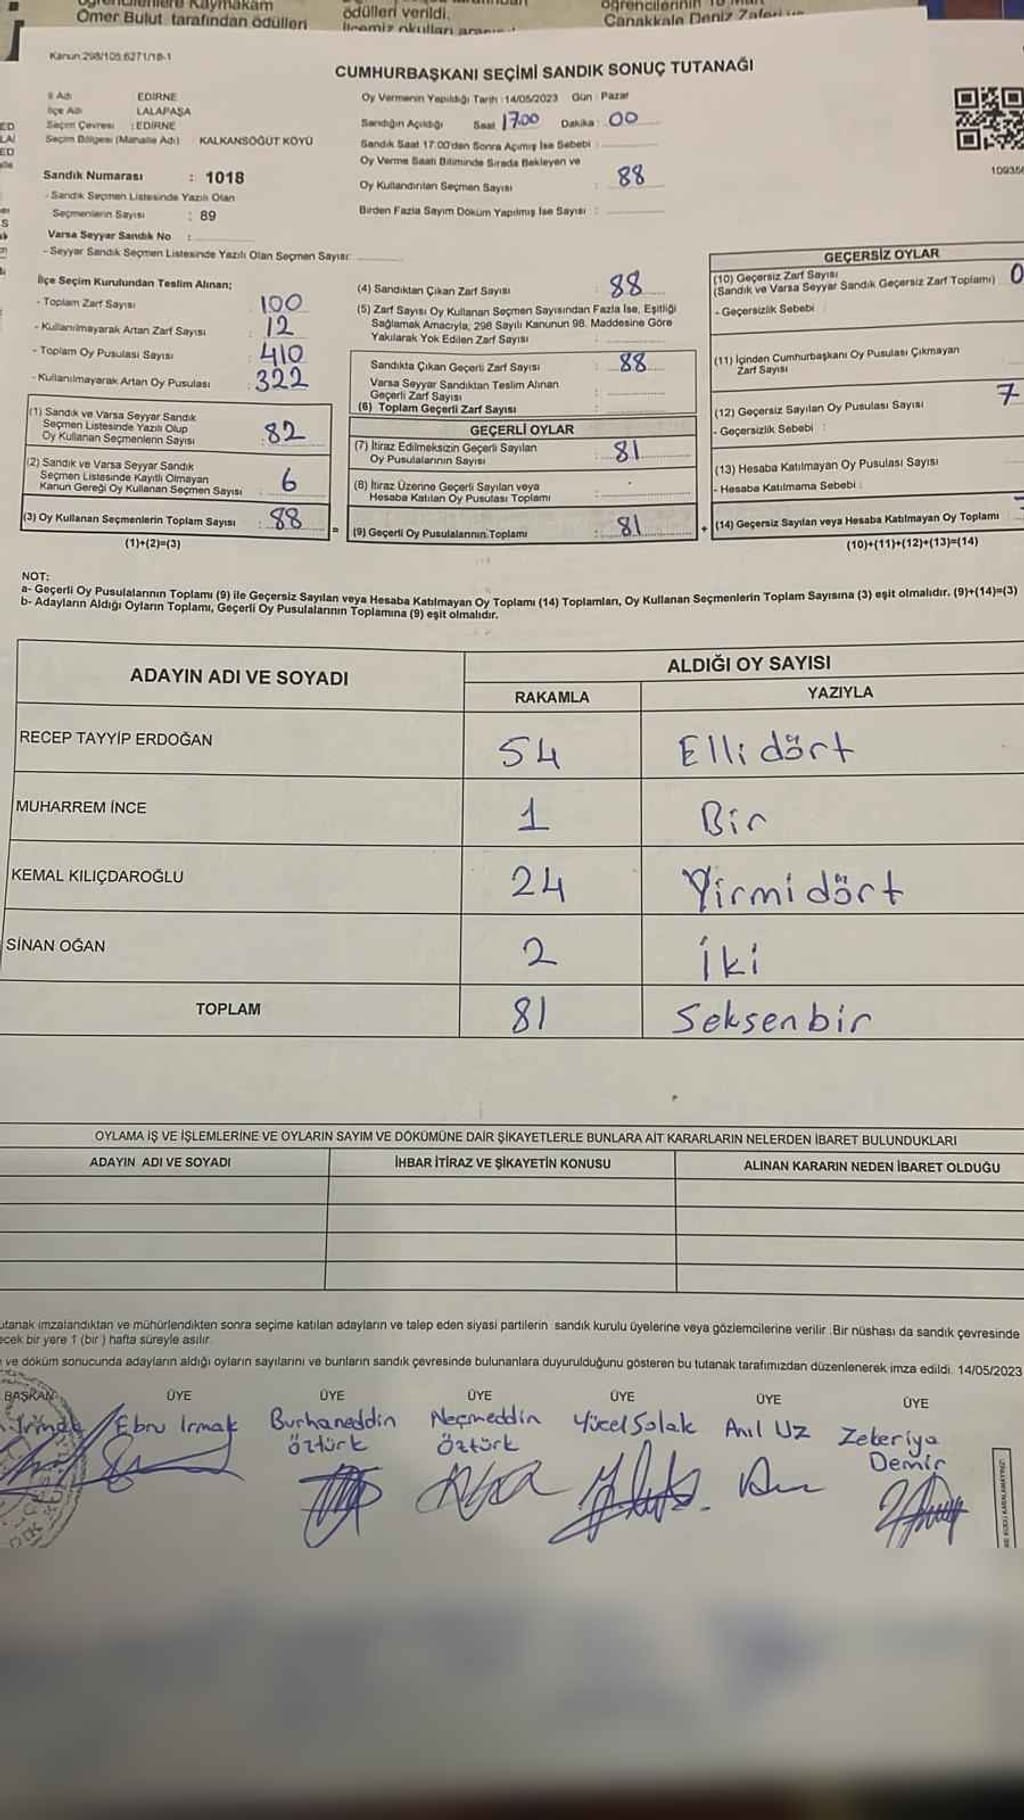 Ömer Bulut tarafından ödülleri
ödülleri verildi.
öğrencilerinin 18 Mart
Çanakkale Deniz Zaferi
Kanun:298/105 6271/18-1
CUMHURBAŞKANI SEÇİMİ SANDIK SONUÇ TUTANAĞI
İl Adı EDİRNE
İlçe Adı LALAPAŞA
Seçim Çevresi : EDİRNE
Seçim Bölgesi (Mahalle Adı) KALKANSÖĞÜT KÖYÜ
Sandık Numarası : 1018
- Sandık Seçmen Listesinde Yazılı Olan
Seçmenlerin Sayısı : 89
Varsa Seyyar Sandık No :
- Seyyar Sandık Seçmen Listesinde Yazılı Olan Seçmen Sayısı:
Oy Vermenin Yapıldığı Tarih : 14/05/2023 Gün : Pazar
Sandığın Açıldığı Saat 17.00 Dakika : 00
Sandık Saat 17:00'den Sonra Açımış İse Sebebi :
Oy Verme Saati Bitiminde Sırada Bekleyen ve
Oy Kullandırılan Seçmen Sayısı : 88
Birden Fazla Sayım Döküm Yapılmış İse Sayısı :
İlçe Seçim Kurulundan Teslim Alınan;
- Toplam Zarf Sayısı : 100
- Kullanılmayarak Artan Zarf Sayısı : 12
- Toplam Oy Pusulası Sayısı : 410
- Kullanılmayarak Artan Oy Pusulası : 322
(1) Sandık ve Varsa Seyyar Sandık
Seçmen Listesinde Yazılı Olup
Oy Kullanan Seçmenlerin Sayısı : 82
(2) Sandık ve Varsa Seyyar Sandık
Seçmen Listesinde Kayıtlı Olmayan
Kanun Gereği Oy Kullanan Seçmen Sayısı : 6
(3) Oy Kullanan Seçmenlerin Toplam Sayısı : 88
(1)+(2)=(3)
(4) Sandıktan Çıkan Zarf Sayısı : 88
(5) Zarf Sayısı Oy Kullanan Seçmen Sayısından Fazla İse, Eşitliği
Sağlamak Amacıyla, 298 Sayılı Kanunun 98. Maddesine Göre
Yakılarak Yok Edilen Zarf Sayısı :
Sandıkta Çıkan Geçerli Zarf Sayısı : 88
Varsa Seyyar Sandıktan Teslim Alınan
Geçerli Zarf Sayısı :
(6) Toplam Geçerli Zarf Sayısı :
GEÇERLİ OYLAR
(7) İtiraz Edilmeksizin Geçerli Sayılan
Oy Pusulalarının Sayısı : 81
(8) İtiraz Üzerine Geçerli Sayılan veya
Hesaba Katılan Oy Pusulası Toplamı :
= (9) Geçerli Oy Pusulalarının Toplamı : 81
GEÇERSİZ OYLAR
(10) Geçersiz Zarf Sayısı
(Sandık ve Varsa Seyyar Sandık Geçersiz Zarf Toplamı) 0
- Geçersizlik Sebebi
(11) İçinden Cumhurbaşkanı Oy Pusulası Çıkmayan
Zarf Sayısı
(12) Geçersiz Sayılan Oy Pusulası Sayısı 7
- Geçersizlik Sebebi :
(13) Hesaba Katılmayan Oy Pusulası Sayısı
- Hesaba Katılmama Sebebi :
+ (14) Geçersiz Sayılan veya Hesaba Katılmayan Oy Toplamı
(10)+(11)+(12)+(13)=(14)
NOT:
a- Geçerli Oy Pusulalarının Toplamı (9) ile Geçersiz Sayılan veya Hesaba Katılmayan Oy Toplamı (14) Toplamları, Oy Kullanan Seçmenlerin Toplam Sayısına (3) eşit olmalıdır. (9)+(14)=(3)
b- Adayların Aldığı Oyların Toplamı, Geçerli Oy Pusulalarının Toplamına (9) eşit olmalıdır.
ADAYIN ADI VE SOYADI
ALDIĞI OY SAYISI
RAKAMLA YAZIYLA
RECEP TAYYİP ERDOĞAN 54 Elli dört
MUHARREM İNCE 1 Bir
KEMAL KILIÇDAROĞLU 24 Yirmi dört
SİNAN OĞAN 2 İki
TOPLAM 81 Seksenbir
OYLAMA İŞ VE İŞLEMLERİNE VE OYLARIN SAYIM VE DÖKÜMÜNE DAİR ŞİKAYETLERLE BUNLARA AİT KARARLARIN NELERDEN İBARET BULUNDUKLARI
ADAYIN ADI VE SOYADI İHBAR İTİRAZ VE ŞİKAYETİN KONUSU ALINAN KARARIN NEDEN İBARET OLDUĞU
utanak imzalandıktan ve mühürlendikten sonra seçime katılan adayların ve talep eden siyasi partilerin sandık kurulu üyelerine veya gözlemcilerine verilir .Bir nüshası da sandık çevresinde
ecek bir yere 1 (bir ) hafta süreyle asılır.
ve döküm sonucunda adayların aldığı oyların sayılarını ve bunların sandık çevresinde bulunanlara duyurulduğunu gösteren bu tutanak tarafımızdan düzenlenerek imza edildi. 14/05/2023
BAŞKAN ÜYE ÜYE ÜYE ÜYE ÜYE ÜYE
Ebru Irmak Burhaneddin Necmeddin Yücel Solak Anıl Uz Zekeriya
Öztürk Öztürk Demir